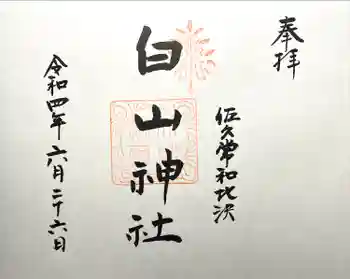 奉拝
佐久常和比决
白山神社
令和四年六月二十六日